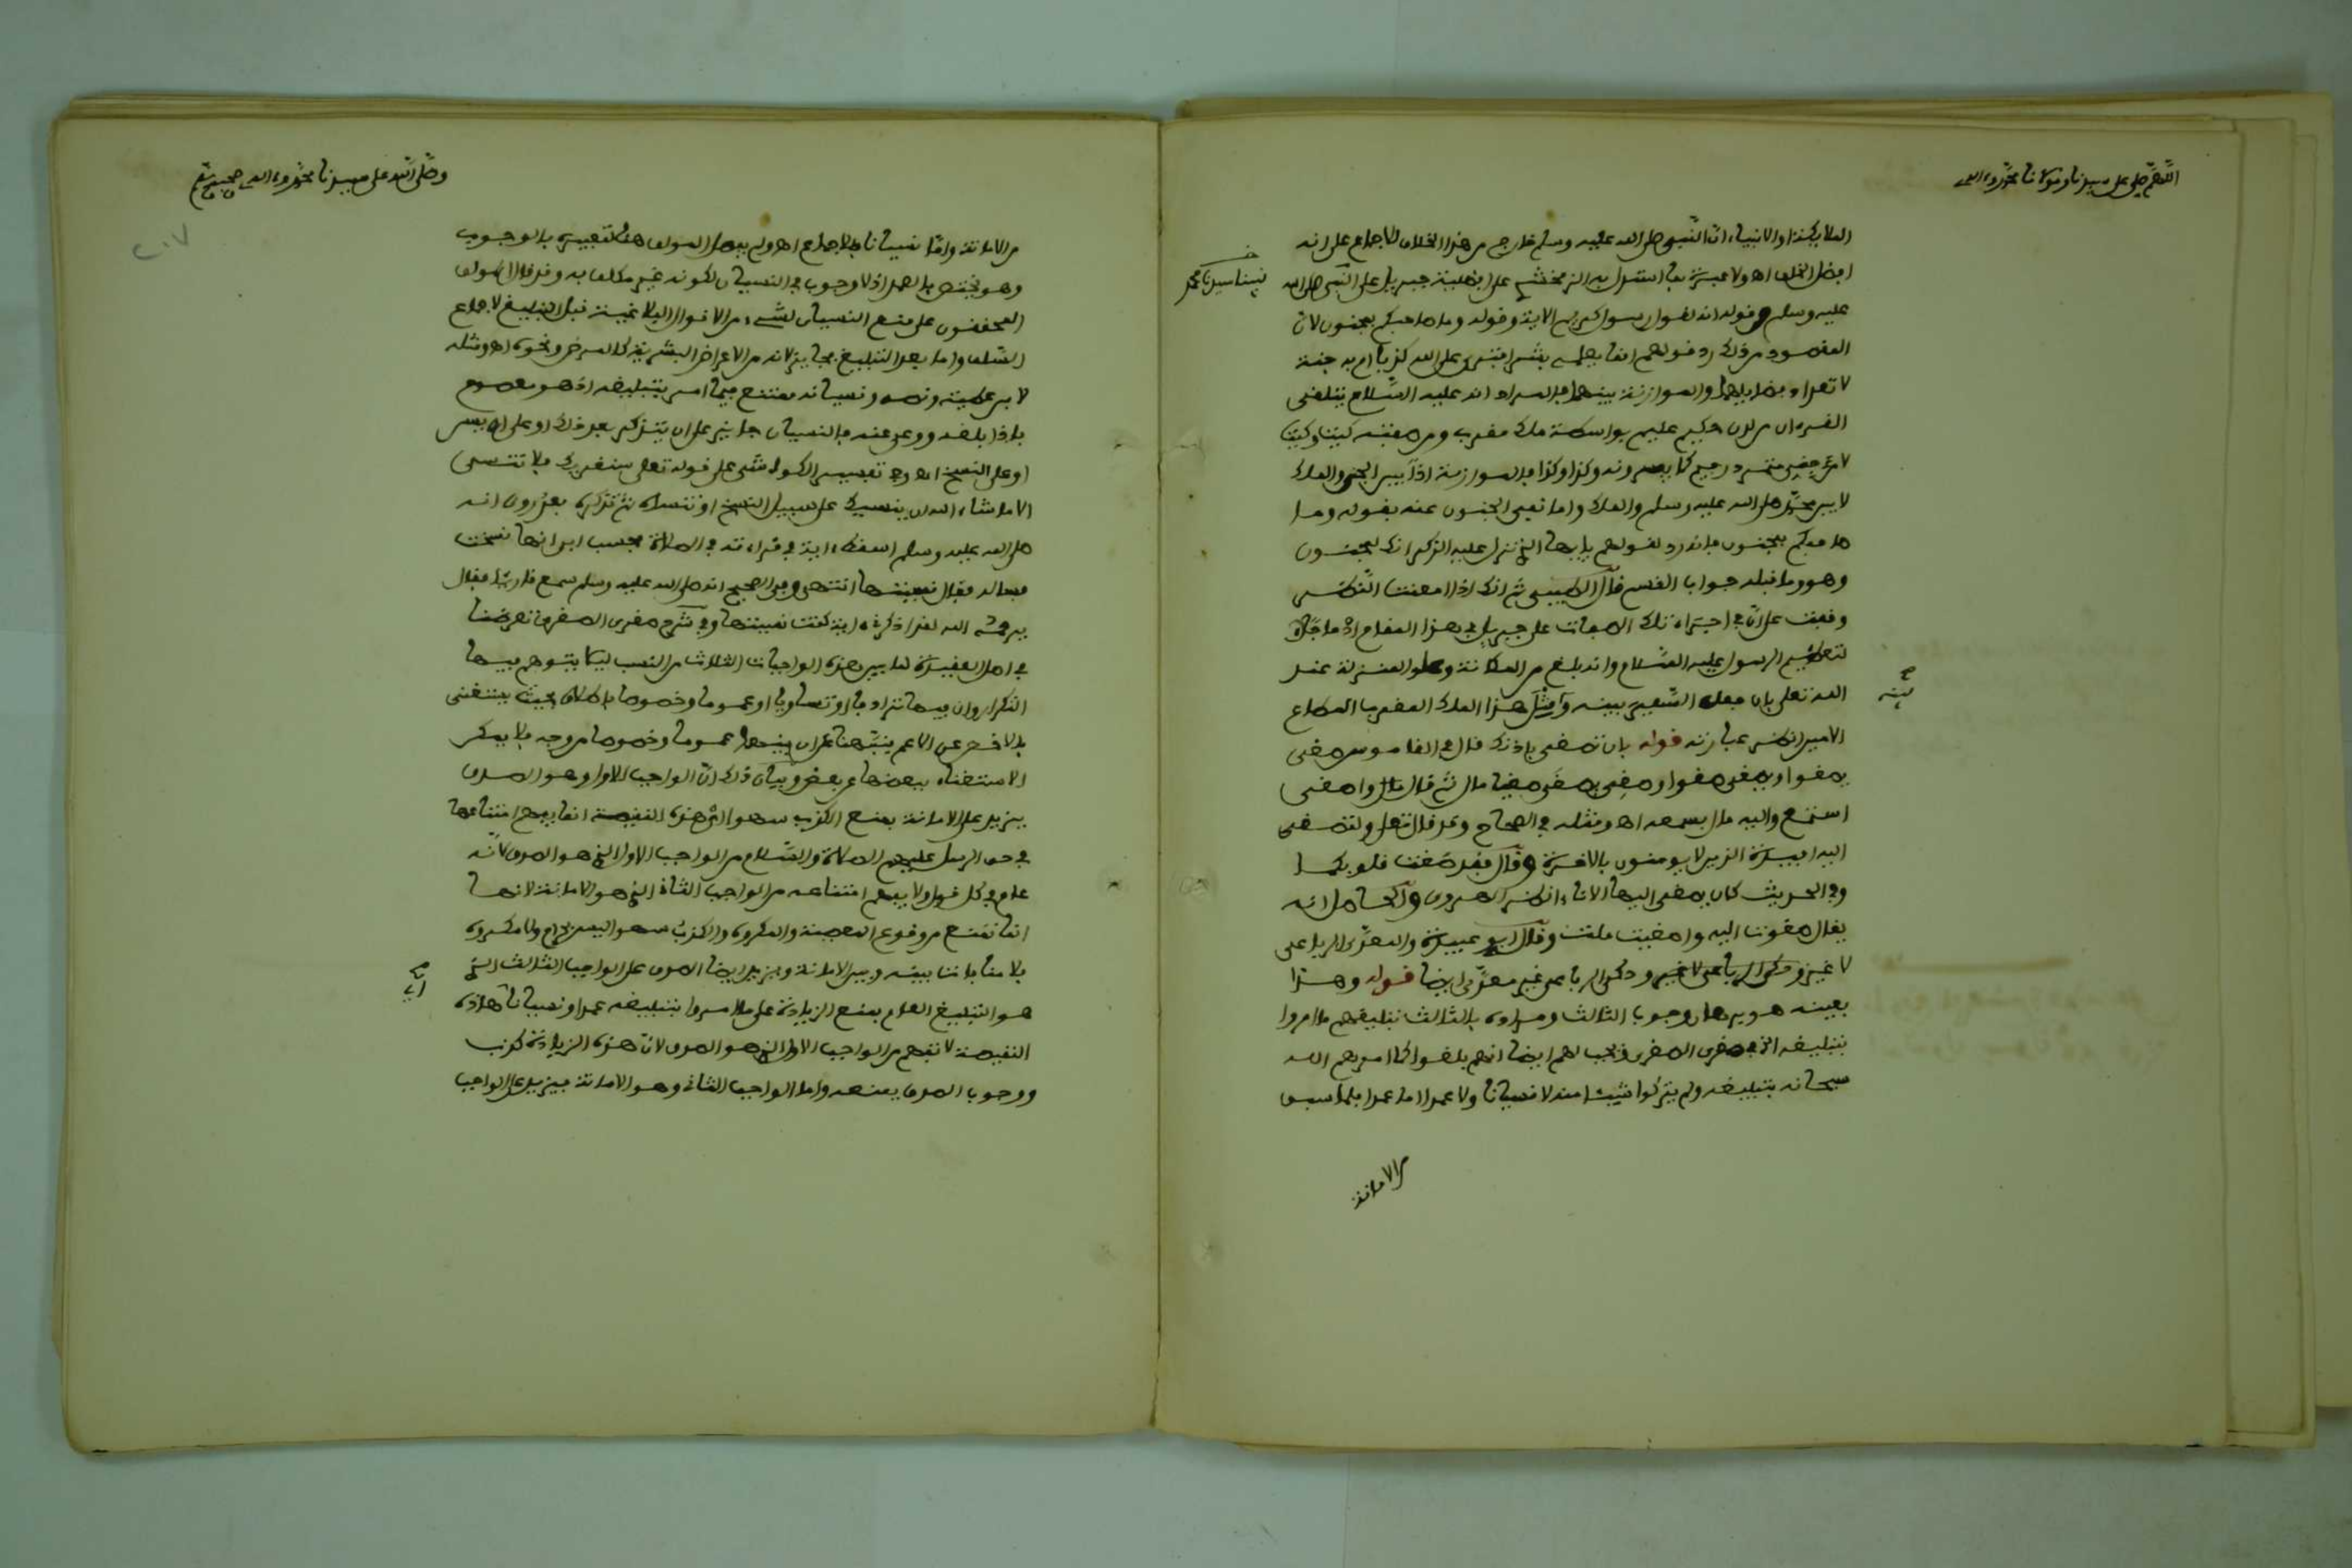 اللهم صل على سيدنا ومولانا محمد وءاله
الملائكة او الانبياء ان النبي صلى الله عليه وسلم خارج من هذا الخلاف للاجماع على انه
افضل الخلق اه ولا عبرة بما استدل به الزمخشري على افضلية جبريل على النبي صلى الله
نبينا سيدنا محمد
عليه وسلم من قوله انه لقول رسول كريم الاية وقوله وما صاحبكم بمجنون لان
المقصود من ذلك رد قولهم انما يعلمه بشر افترى على الله كذبا ام به جنة
لا تعداد فضايلهما والموازنة بينهما فالمراد انه عليه السلام يتلقى
القرءان من لدن حكيم عليم بواسطة ملك مقرب ومن صفته كيت وكيت
لا من جني متمرد رجيم كما يصبرونه وكذا وكذا فالموازنة اذا بين الجني والملك
لا بين محمد صلى الله عليه وسلم والملك واما نفي الجنون عنه بقوله وما
صاحبكم بمجنون فانه رد لقولهم يايها الذي نزل عليه الذكر انك لمجنون
وهو وما قبله جواب القسم قال الطيبي ثم انك اذا امعنت النظر
وقفت على ان في اجراء تلك الصفات على جبريل في هذا المقام ادماجا
لتعظيم الرسول عليه السلام وانه بلغ من المكانة وعلو المنزلة عند
الله تعلى بان جعل السفير بينه وبين مثل هذا الملك المقرب المطاع
بينه
الامين انظر عبارته قوله بان تصغى باذنك قال في القاموس صغى
يصغوا ويصغى صغوا وصغي يصغى صغيا مال ثم قال واصغى
استمع واليه مال بسمعه اه ومثله في الصحاح وقد قال تعلى ولتصغى
اليه افئدة الذين لا يومنون بالاخرة وقال فقد صغت قلوبكما
وفي الحديث كان يصغى اليها الاناء انظر الهروى والحاصل انه
يقال صغوت اليه واصغيت ملت وقال ابو عبيدة والمعدى الرباعى
لا غير وحكى الرباعى غير معدى ايضا قوله وهذا
بعينه هو برهان وجوب الثالث ومراده بالثالث تبليغهم ما امروا
بتبليغه انظر صغرى الصغرى ويجب لهم ايضا انهم بلغوا كما امرهم الله
سبحانه بتبليغه ولم يتركوا شيئا منه لا نسيانا ولا عمدا اما عمدا فلما سبق
من الامانة
وصلى الله على سيدنا محمد وءاله وصحبه وسلم
٢٠٧
من الامانة واما نسيانا فللاجماع اه ولم يبدل المولف هنا تعبيره بالوجوب
وهو يختص بالعمد اذ لا وجوب في النسيان لكونه غير مكلف به وقد قال المولف
المحققون على منع النسيان لشيء من الاقوال البلاغية قبل التبليغ لاجماع
السلف واما بعد التبليغ فجايز لانه من الاعراض البشرية كالمرض ونحوه اه ومثله
لابن عطية ونصه ونسيانه ممتنع فيما امر بتبليغه اذ هو معصوم
فاذا بلغه ووعى عنه فالنسيان جايز على ان يتذكر بعد ذلك او على ان يسن
او على النسخ اه وفي تفسير الكواشى على قوله تعلى سنقريك فلا تنسى
الا ما شاء الله ان ينسيك على سبيل النسخ او تنساه ثم تذكره بعد روى انه
صلى الله عليه وسلم اسقط ءاية في قراءته في الصلاة فحسب ابي انها نسخت
فساله فقال نسيتها انتهى وفي الصحيح انه صلى الله عليه وسلم سمع قارئا فقال
يرحمه الله لقد اذكرنى ءاية كنت نسيتها وفي شرح صغرى الصغرى تعرضنا
في اصل العقيدة لما بين هذه الواجبات الثلاث من النسب ليلا يتوهم فيها
التكرار وان فيها ترادفا او تساويا او عموما وخصوصا باطلاق بحيث يستغنى
بالاخص عن الاعم فنبهنا على ان بينهما عموما وخصوصا من وجه فلا يمكن
الاستغناء ببعضها عن بعض وبيان ذلك ان الواجب الاول وهو الصدق
يزيد على الامانة بمنع الكذب سهوا اذ هذه النقيصة انما يفهم امتناعها
في حق الرسل عليهم الصلاة والسلام من الواجب الاول الذي هو الصدق لانه
عام في كل قول ولا يفهم امتناعه من الواجب الثاني الذي هو الامانة لانها
انما تمنع من وقوع المعصية والمكروه والكذب سهوا ليس بحرام ولا مكروه
فلا منافاة بينه وبين الامانة ويزيد ايضا الصدق على الواجب الثالث الذي
هو التبليغ العام بمنع الزيادة على ما امروا بتبليغه عمدا او نسيانا هذه
النقيصة لا تفهم من الواجب الاول الذي هو الصدق لان هذه الزيادة كذب
ووجوب الصدق يمنعه واما الواجب الثاني وهو الامانة فيزيد على الواجب